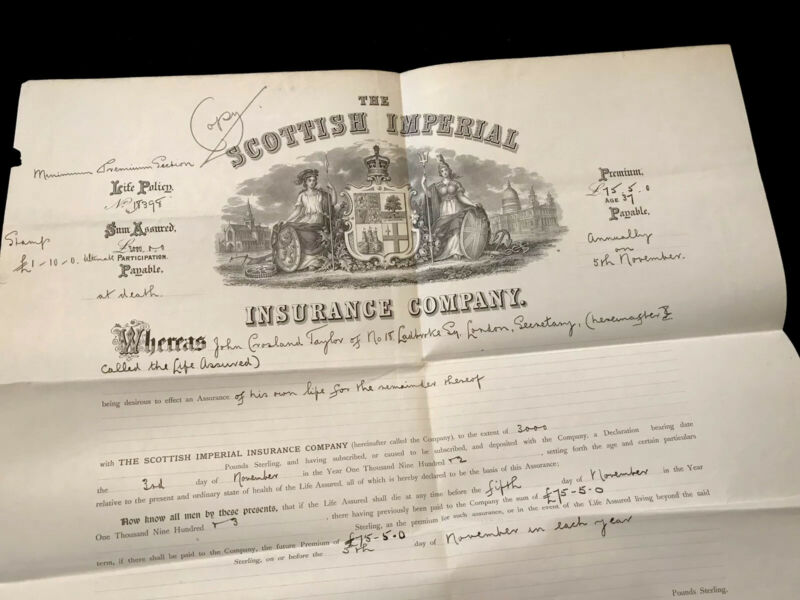 Copy
THE
SCOTTISH IMPERIAL
INSURANCE COMPANY.
Minimum Premium Section
Life Policy.
No. 18398
Sum Assured.
Stamp
£1-10-0.
PARTICIPATION.
Payable.
at death.
Premium.
£75.5.0
AGE 37
Payable.
Annually
on
5th November.
Whereas John Crosland Taylor of No 18 Ladbroke Sq. London, Secretary, (hereinafter
called the Life Assured)
being desirous to effect an Assurance of his own life for the remainder thereof
with THE SCOTTISH IMPERIAL INSURANCE COMPANY (hereinafter called the Company), to the extent of 3000
Pounds Sterling, and having subscribed, or caused to be subscribed, and deposited with the Company, a Declaration bearing date
the 3rd day of November in the Year One Thousand Nine Hundred & 2 , setting forth the age and certain particulars
relative to the present and ordinary state of health of the Life Assured, all of which is hereby declared to be the basis of this Assurance;
Now know all men by these presents, that if the Life Assured shall die at any time before the fifth day of November in the Year
One Thousand Nine Hundred & 3 , there having previously been paid to the Company the sum of £75-5.0
Sterling, as the premium for such assurance, or in the event of the Life Assured living beyond the said
term, if there shall be paid to the Company, the future Premium of £75-5.0
Sterling, on or before the 5th day of November in each year
Pounds Sterling.